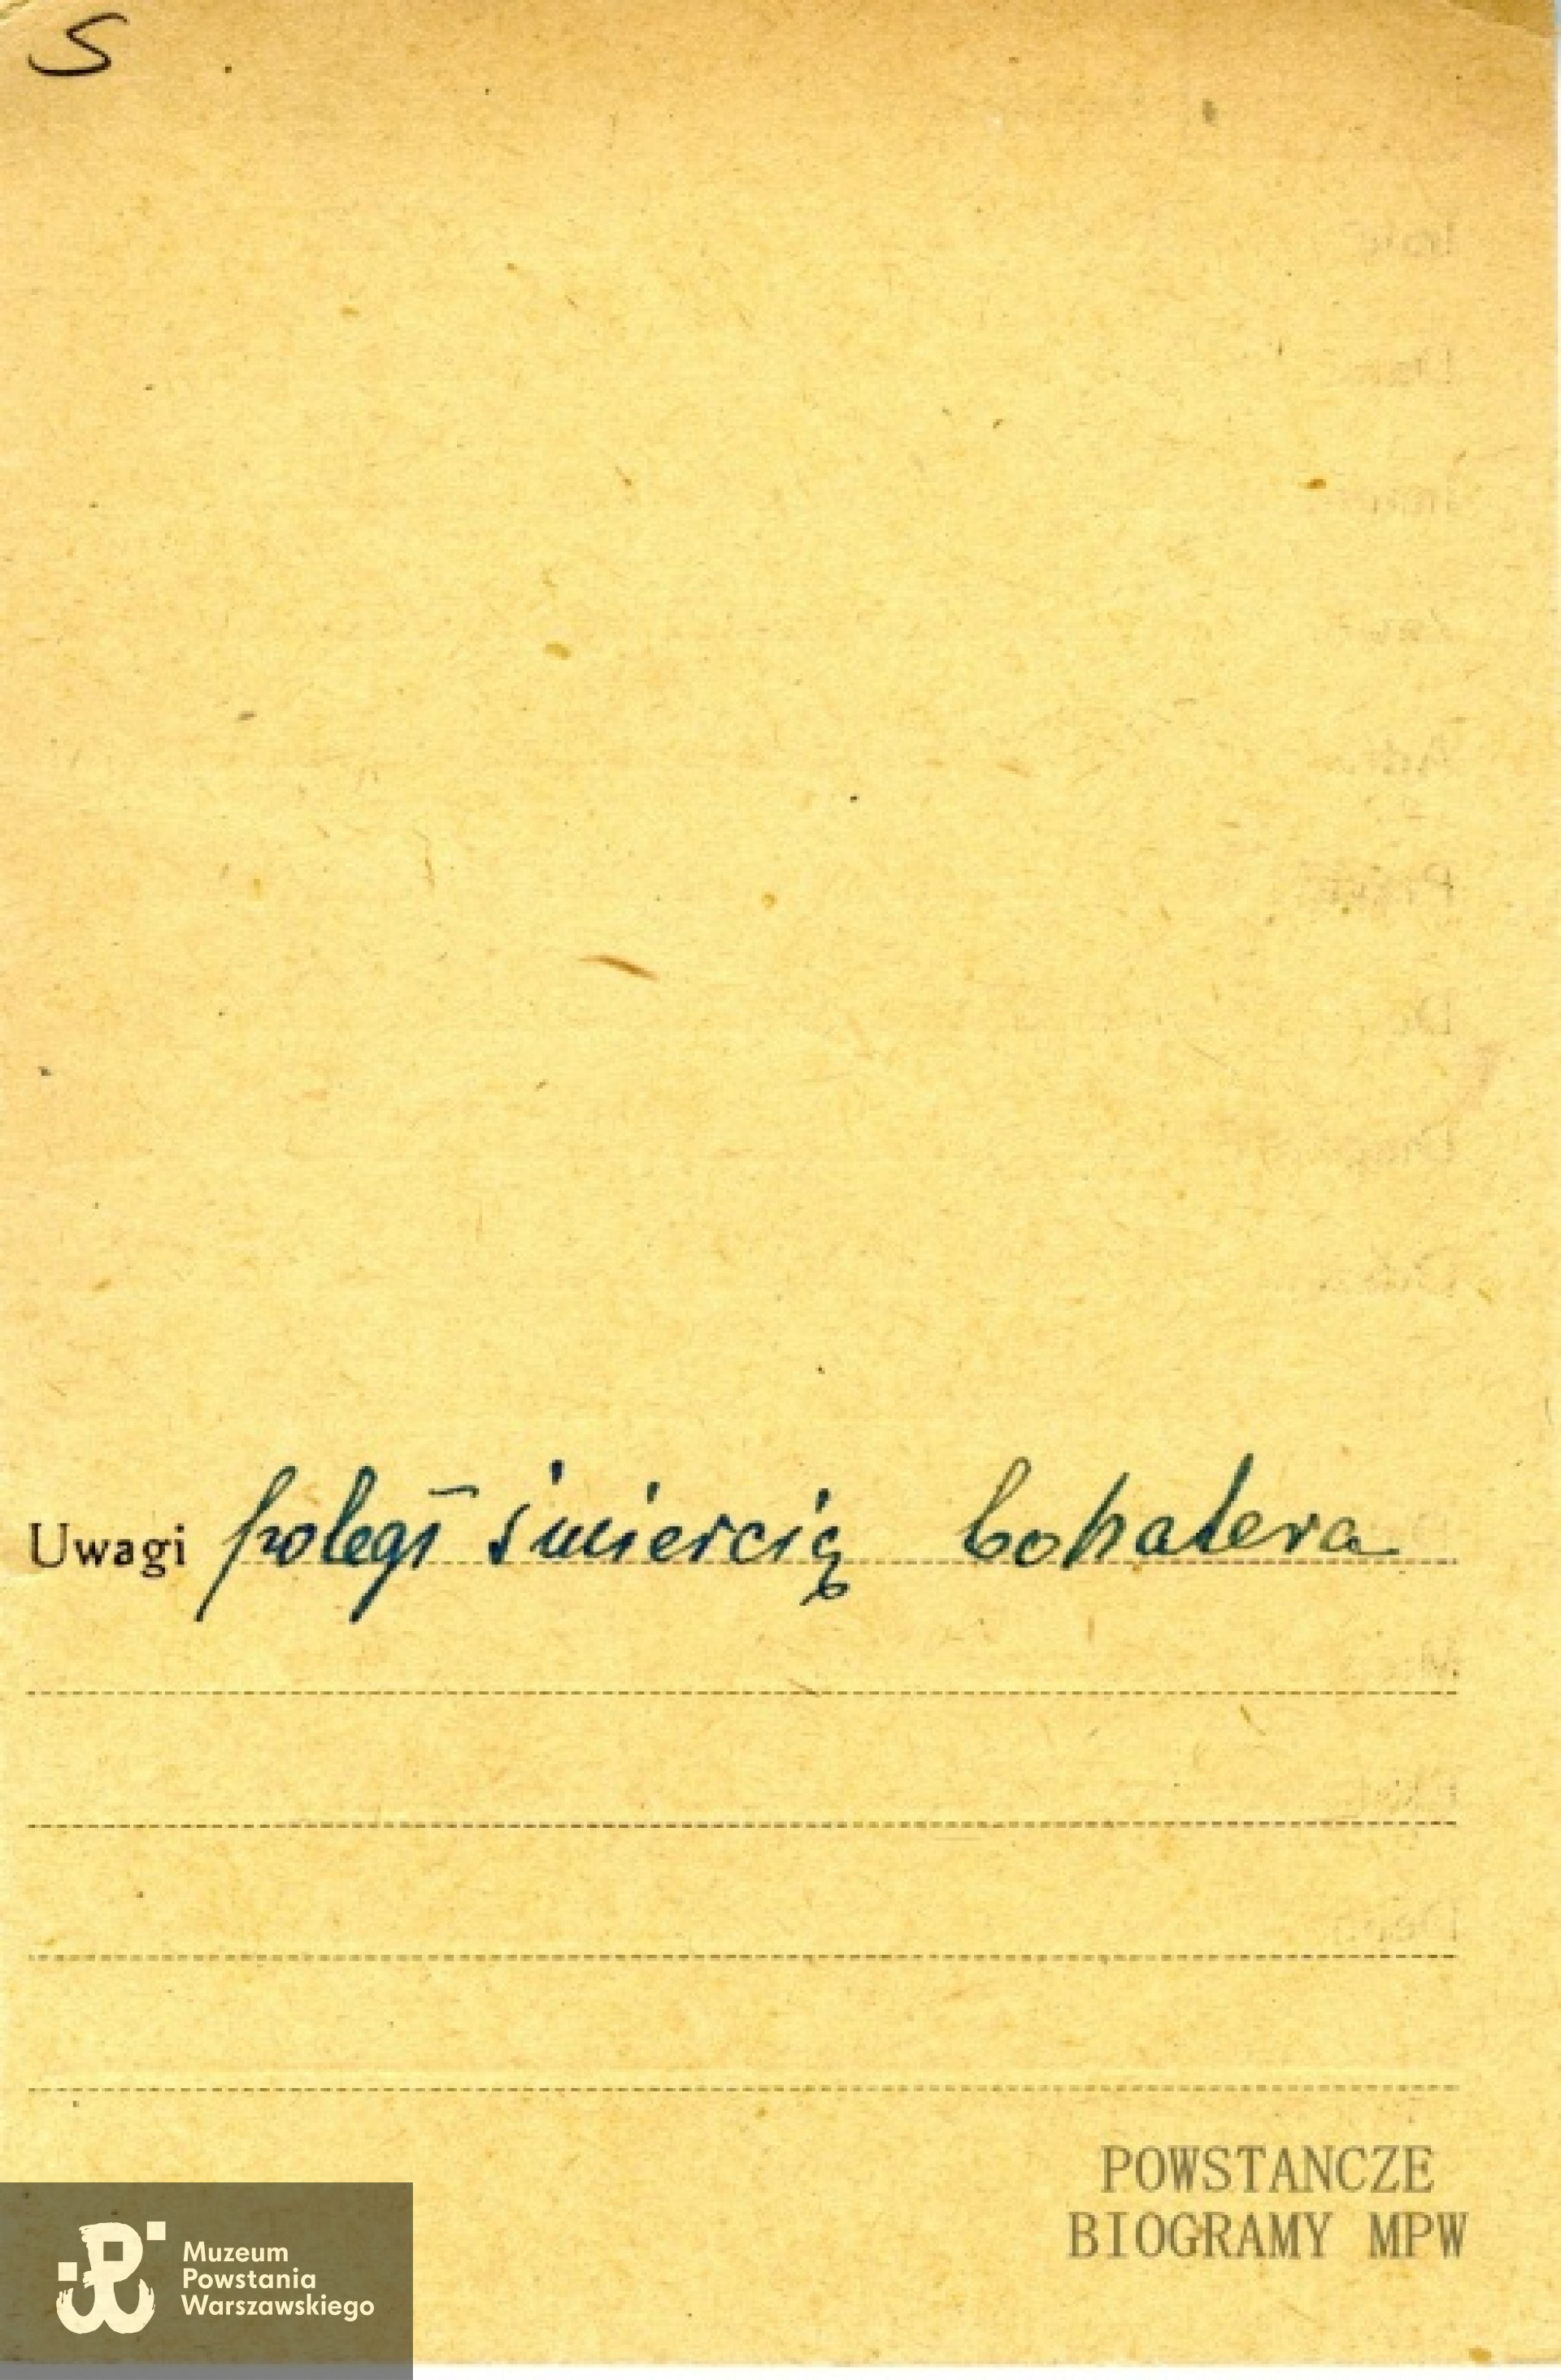 S
Uwagi poległ śmiercią bohatera
POWSTANCZE
BIOGRAMY MPW
Muzeum
Powstania
Warszawskiego